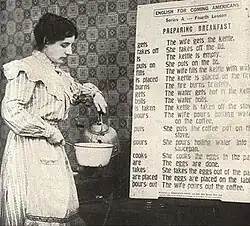 ENGLISH FOR COMING AMERICANS
Series A — Fourth Lesson
PREPARING BREAKFAST
gets The wife gets the kettle.
takes off She takes off the lid.
is The kettle is empty.
puts on She puts on the lid.
fills The wife fills the kettle with
is placed The kettle is placed on the
burns The fire burns
gets The water gets hot in the kettle
boils The water boils.
is taken The kettle is taken off the
pours The wife pours boiling water
on the coffee.
puts She puts the coffee pot on the
stove.
pours She pours boiling water into a
saucepan.
cooks She cooks the eggs in the
are The eggs are done.
takes She takes the eggs out of the
are placed The eggs are placed on the
pours out The wife pours out the coffee.